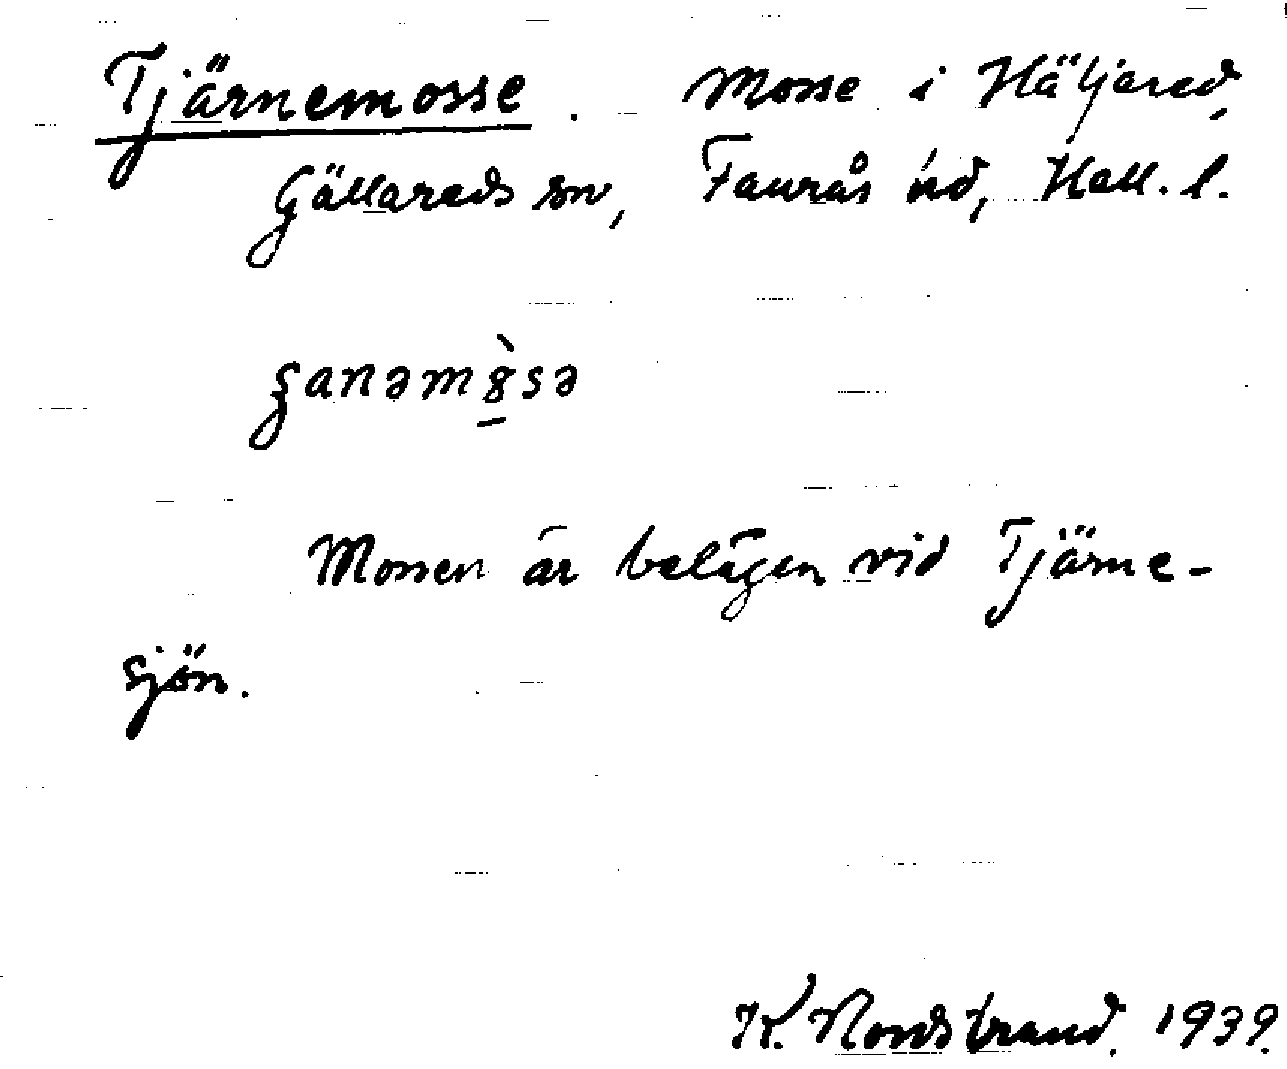 Tjärnemosse. Mosse i Häljared,
Gällareds sn, Faurås hd, Hall. l.
ʒanəm8̀sə
Mossen är belägen vid Tjärne-
sjön.
K. Nordstrand. 1939.